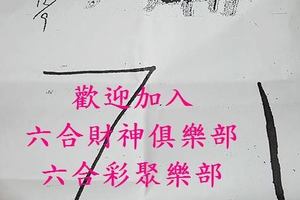 12/9
歡迎加入
六合財神俱樂部
六合彩聚樂部
71